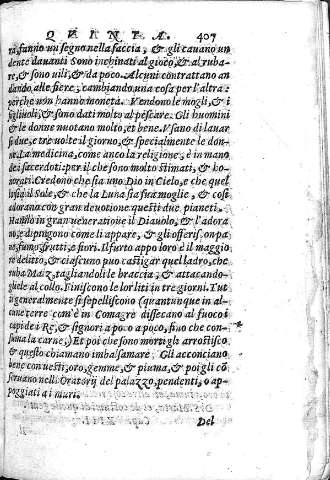 QVINTA. 407
ra, fanno un segno nella faccia, & gli cauano un
dente dauanti Sono inchinati al gioco, & al ruba-
re, & sono uili, & da poco. Alcuni contrattano an
dando alle fiere, cambiando una cosa per l'altra:
perche non hanno moneta. Vendono le mogli, & i
figliuoli, & sono dati molto al pescare. Gli huomini
& le donne nuotano molto, et bene. Vsano di lauar
si due, e tre uolte il giorno, & specialmente le don-
ne. La medicina, come anco la religione, è in mano
de i sacerdoti: per il che sono molto stimati, & ho-
norati. Credono che sia uno Dio in Cielo, e che quel
lo sia il Sole, & che la Luna sia sua moglie, & cosi
adorano con gran deuotione questi due pianeti.
Hanno in gran ueneratione il Diauolo, & l'adora
no, e dipingono come li appare, & gli offeris. on pa
ne, fumo, frutti, e fiori. Il furto appo loro è il maggio
re delitto, & ciascuno puo castigar quel ladro, che
ruba Maiz, tagliandoli le braccia, & attacando-
gliele al collo. Finiscono le lor liti in tre giorni. Tut
ti generalmente si sepelliscono (quantunque in al-
cune terre com'è in Comagre disseccano al fuoco i
capi de i Re, & signori a poco a poco, fino che con-
suma la carne;) Et poi che sono morti gli arrostisco
& questo chiamano imbalsamare. Gli acconciano
bene con uesti, oro, gemme, & piuma, & poi gli co
seruano nelli Oratorij del palazzo, pendenti, o ap-
poggiati ai muri.
Del